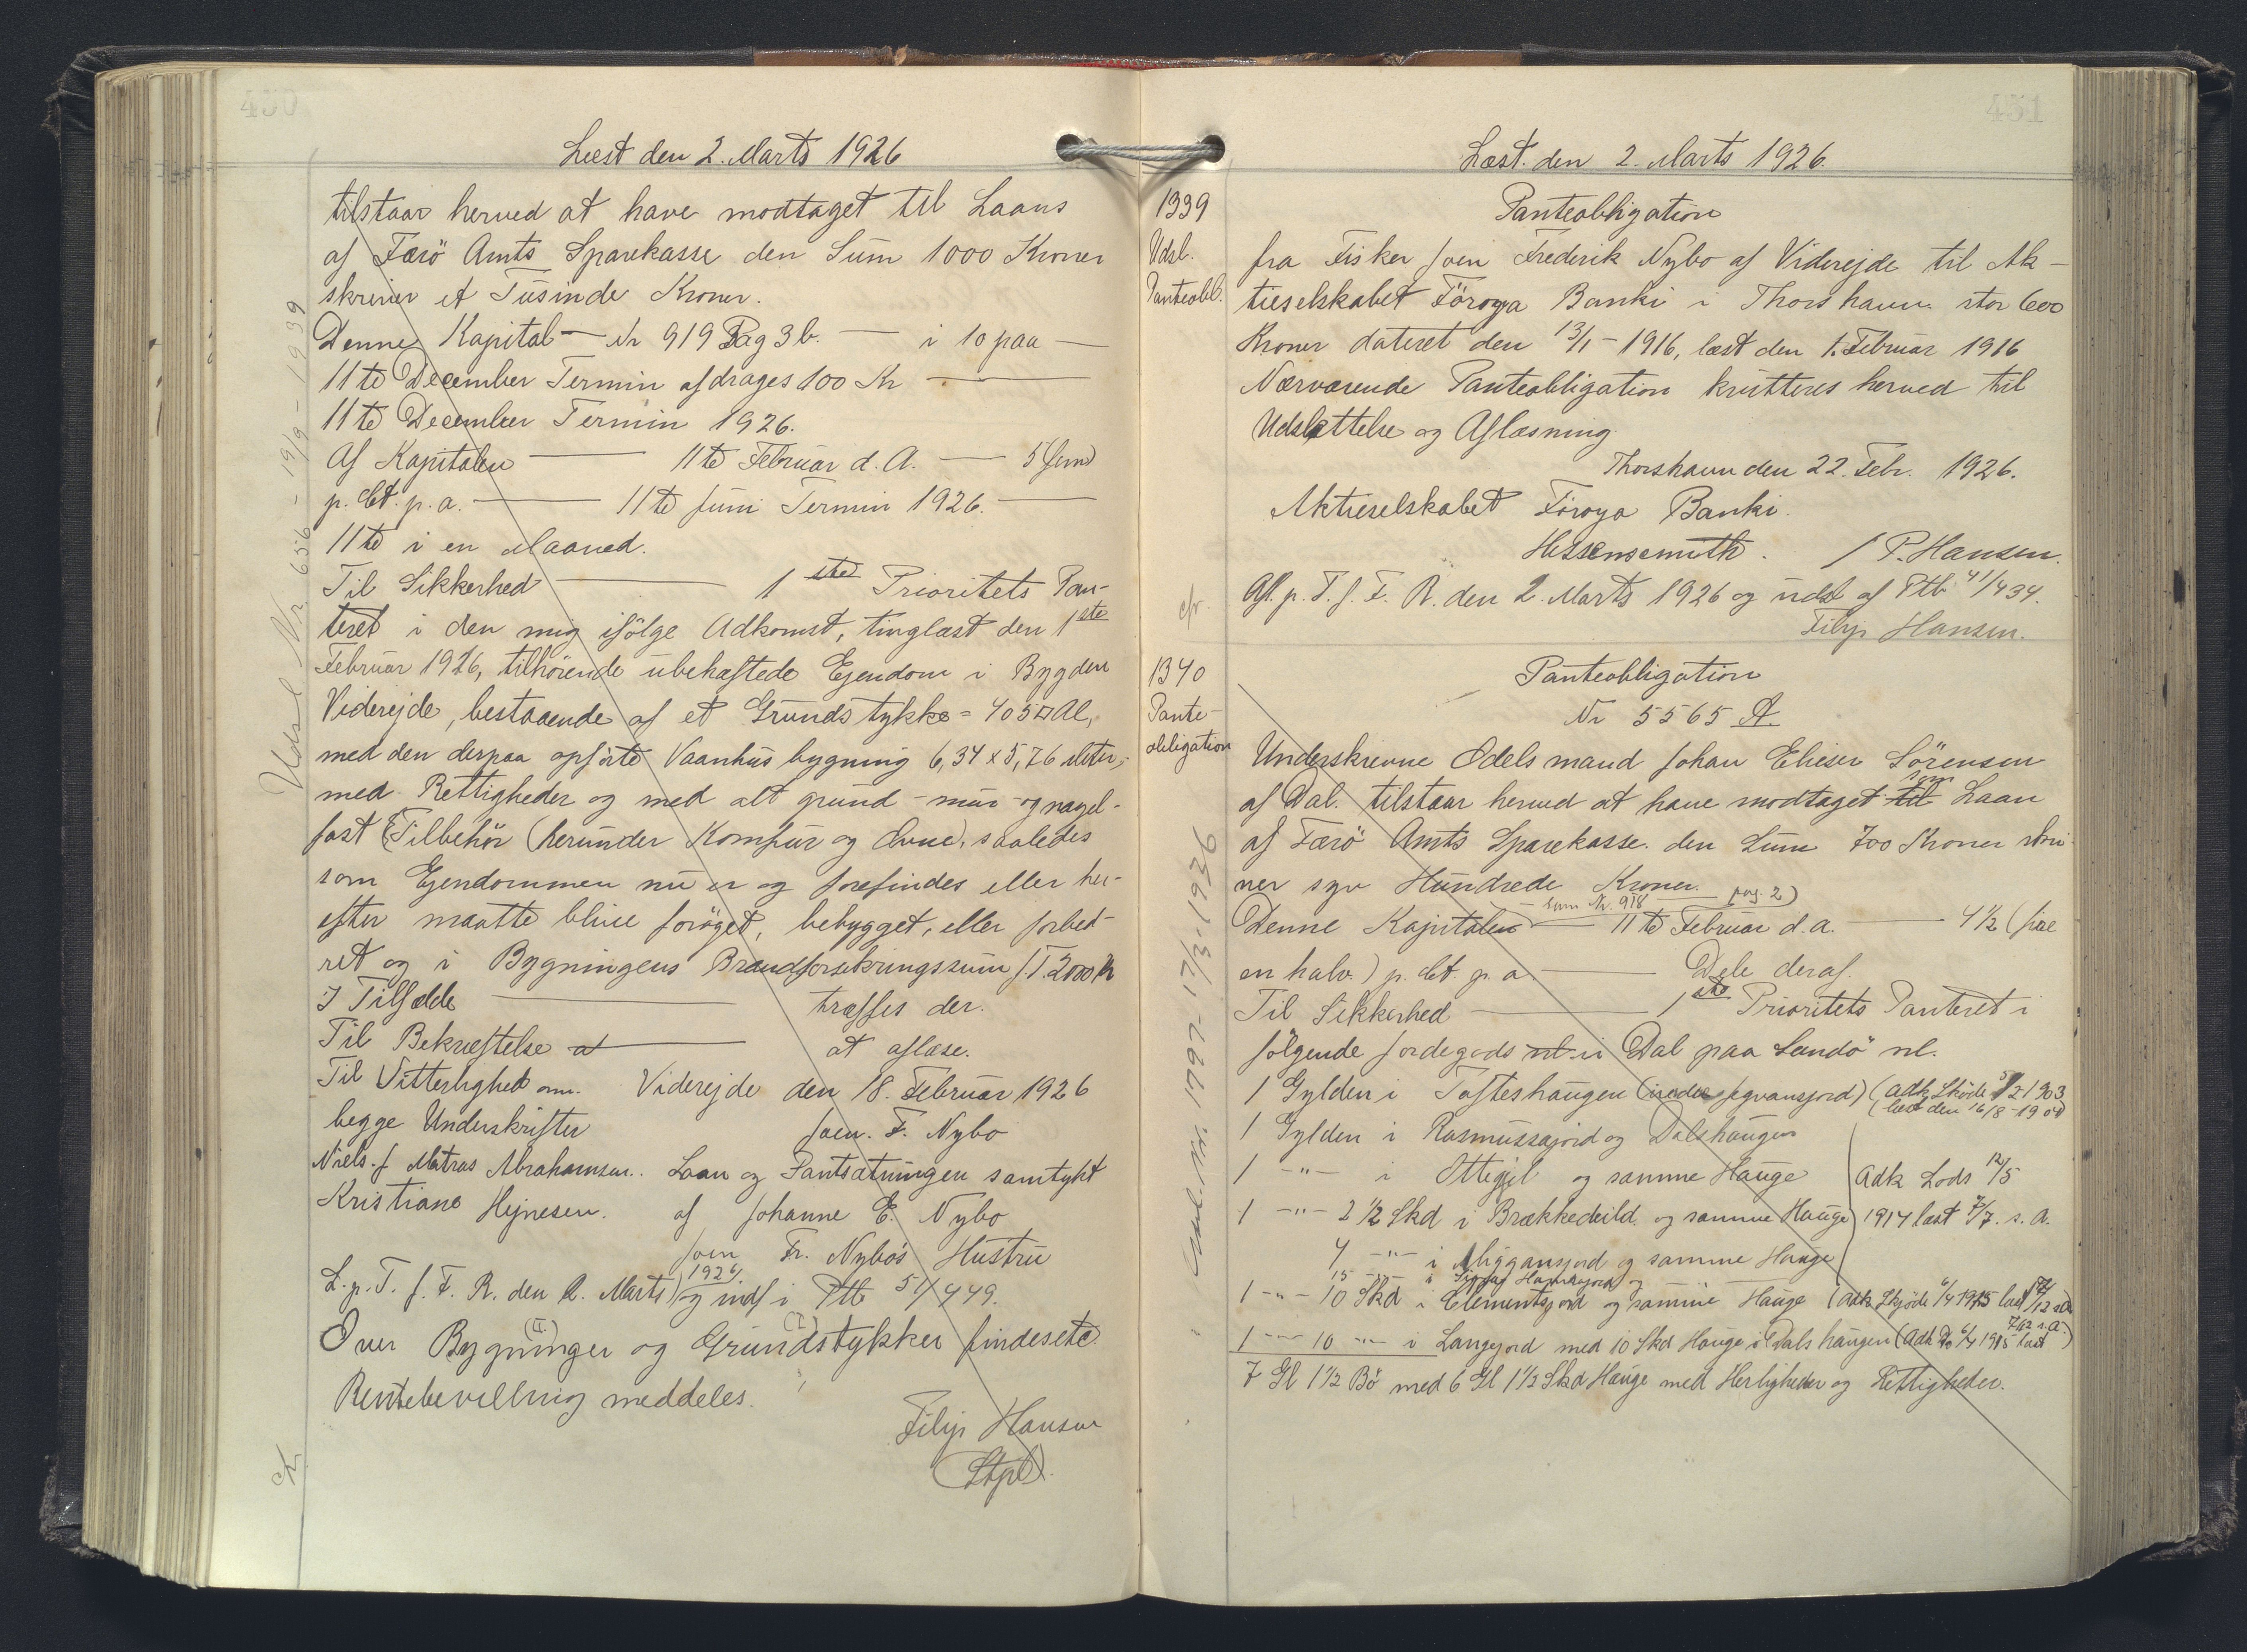 450
Læst den 2. Marts 1926
tilstaar herved at have modtaget til Laans
af Færö Amts Sparekasse den Sum 1000 Kroner
skriver et Tusinde Kroner.
Denne Kapital — Nr 919 Pag 3 b. — i 10 paa —
11te December Termin afdrages 100 Kr —
11te December Termin 1926.
Af Kapitalen — 11te Februar d. A. — 5 (fem)
p. Ct. p. a. — 11te Juni Termin 1926. —
11te i en Maaned.
Til Sikkerhed — 1ste Prioritets Pan-
teret i den mig ifölge Adkomst, tinglæst den 1ste
Februar 1926, tilhörende ubehæftede Ejendom i Bygden
Viderejde, bestaaende af et Grundstykke = 405 □ Al,
med den derpaa opförte Vaanhus bygning 6,34 x 5,76 Meter,
med Rettigheder og med alt grund - mur - og nagel-
fast Tilbehör (herunder Komfur og Ovne), saaledes
som Ejendommen nu er og forefindes eller her-
efter maatte blive foröget, bebygget, eller forbed-
ret og i Bygningens Brandforsikringssum f. T. 2000 Kr
I Tilfælde — træffes der.
Til Bekræftelse — at aflæse.
Til Vitterlighed om. Viderejde den 18. Februar 1926
begge Underskrifter Joen. F. Nybo
Niels. J Matras Abrahamsen. Laan og Pantsætningen samtykt
Kristiane Hejnesen. af Johanne E. Nybo
Joen Fr. Nybo's Hustru
L. p. T. f. F. R. den 2. Marts 1926 og indf i Ptb 51/449.
Over Bygninger (1) og Grundstykker (1) findes etc.
Rentebevilling meddeles.
Filip Hansen
(Stpl)
cfr
Udsl Nr. 656 - 19/9 - 1939
451
Læst. den 2. Marts 1926.
1339
Udsl.
Panteobl.
Panteobligation
fra Fisker Joen Frederik Nybo af Viderejde til Ak-
tieselskabet Föroya Banki i Thorshavn stor 600
Kroner dateret den 13/1 - 1916, læst den 1. Februar 1916
Nærværende Panteobligation kvitteres herved til
Udslettelse og Aflæsning.
Thorshavn den 22. Febr. 1926.
Aktieselskabet Föroya Banki.
/ P. Hansen.
cfr.
Afl. p. T. f. F. R. den 2. Marts 1926 og udsl af Ptb 41/434.
Filip Hansen.
1340
Pante-
obligation
Panteobligation
Nr 5565 A.
Underskrevne Odelsmand Johan Elieser Sörensen
af Dal. tilstaar herved at have modtaget til som Laan
af Færö Amts Sparekasse. den Sum 700 Kroner skri-
ver syv Hundrede Kroner.
Denne Kapitalen — som Nr. 918 — pag. 2) 11te Februar d. a. — 4 1/2 (fire
en halv.) p. Ct. p. a. — Dele deraf.
Til Sikkerhed — 1ste Prioritets Panteret i
fölgende Jordegods nl. i Dal paa Sandö nl.
1 Gylden i Tofteshaugen (Adk. Sköde 1903
(læst den 16/8 - 1904)
1 Gylden i Rasmussajord og Dalshaugen
1 -"- i Ottegjel og samme Hauge Adk Lods 12/5
1 -"- 2 1/2 Skd i Brækkedeild og samme Hauge 1914 læst 7/7. s. A.
4 -"- i jord og samme Hauge
1 -"- 10 Skd i Clementsjord og samme Hauge (Adk Skjöde 6/4 1915 læst
1 -"- 10 -"- i Langejord med 10 Skd Hauge i Dals haugen (Adk Do 6/4 1915 læst
7/12 s. a.)
7 Gl 1 1/2 Bö med 6 Gl 1 1/2 Skd Hauge med Herligheder og Rettigheder.